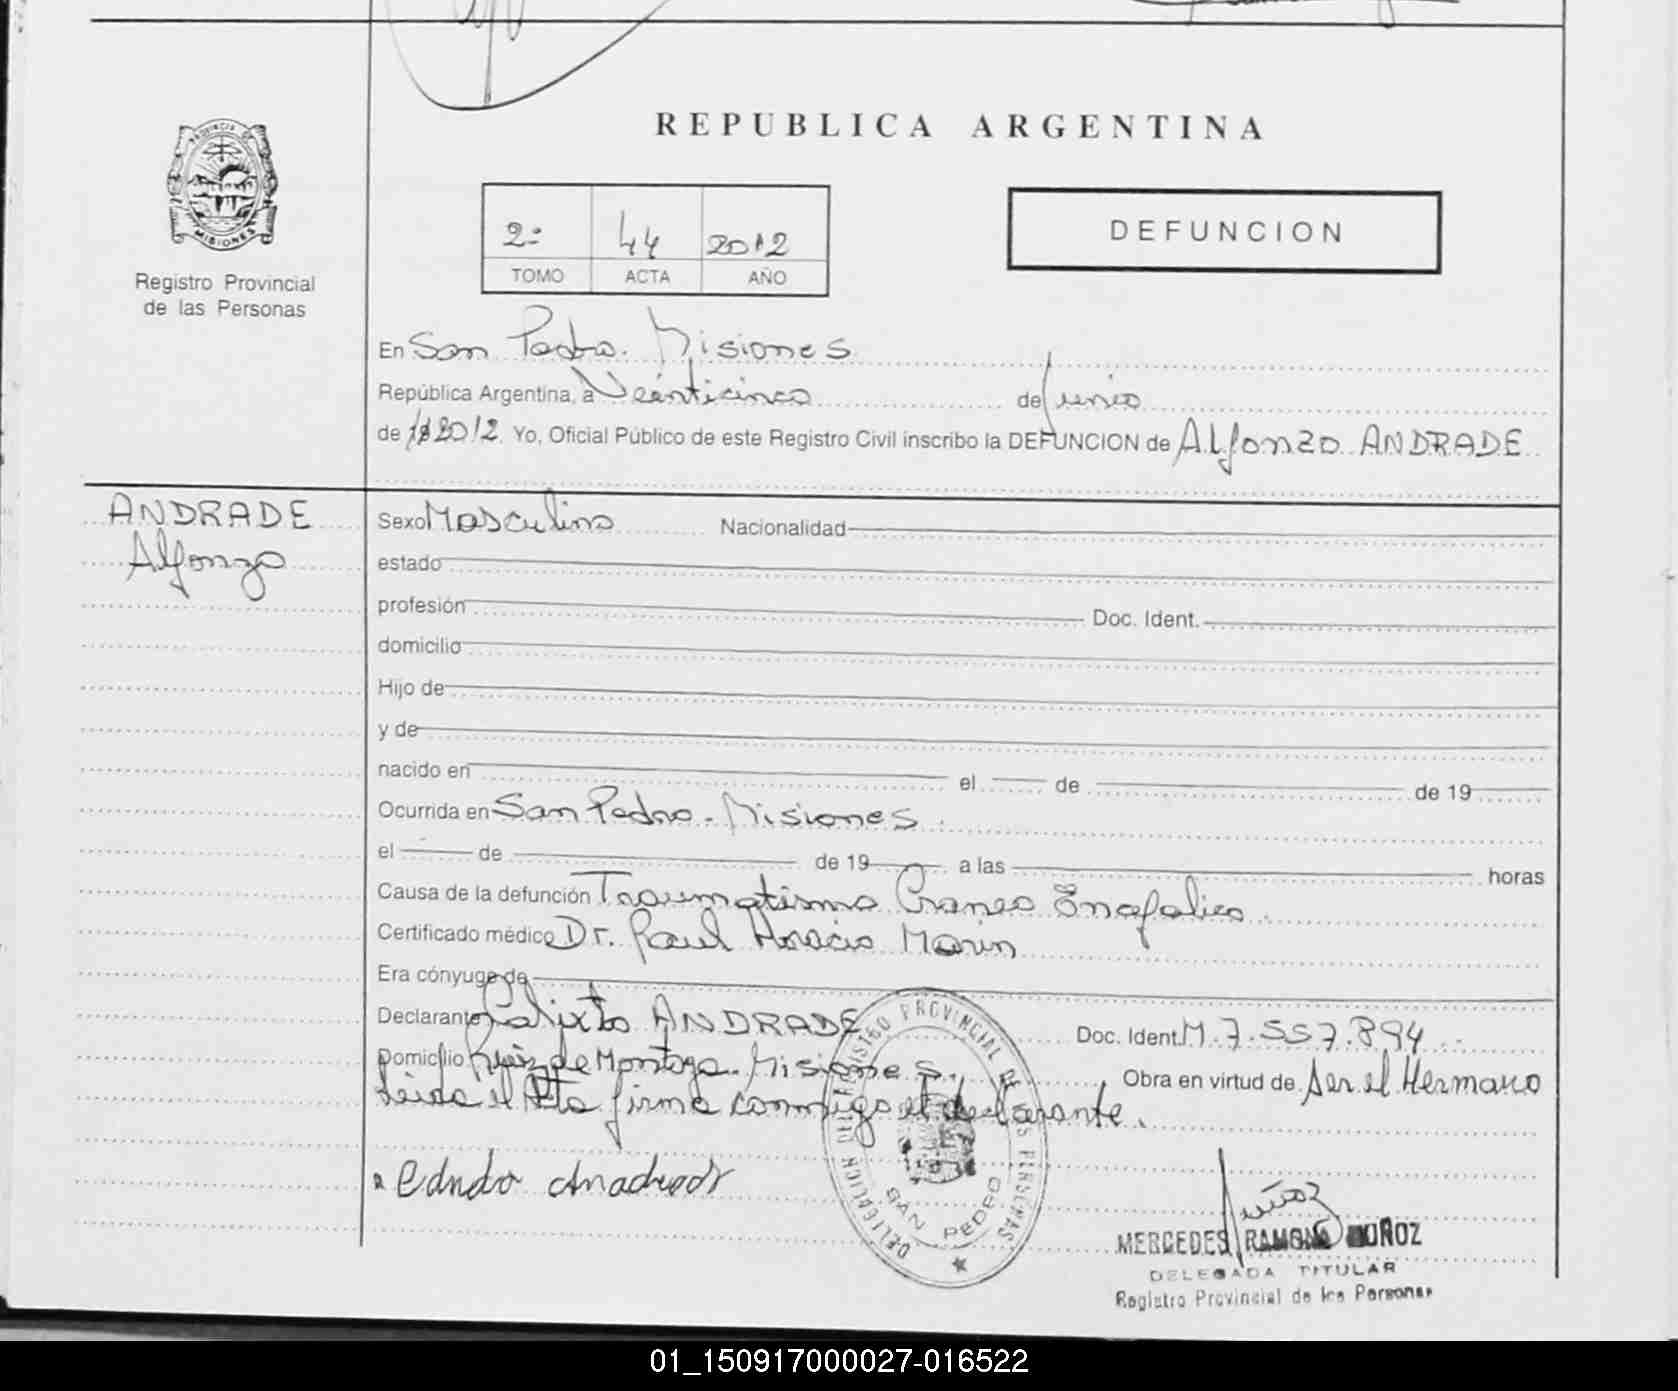 REPUBLICA ARGENTINA
PROVINCIA DE
MISIONES
Registro Provincial
de las Personas
2º 44 2012
TOMO ACTA AÑO
DEFUNCION
En San Pedro. Misiones
República Argentina, a Veinticinco de Junio
de 19 2012. Yo, Oficial Público de este Registro Civil inscribo la DEFUNCION de Alfonzo ANDRADE
ANDRADE
Alfonzo
Sexo Masculino Nacionalidad
estado
profesión Doc. Ident.
domicilio
Hijo de
y de
nacido en el de de 19
Ocurrida en San Pedro - Misiones.
el de de 19 a las horas
Causa de la defunción Traumatismo Craneo Enafalico.
Certificado médico Dr. Raul Horacio Marin
Era cónyuge de
Declarante Calixto ANDRADE Doc. Ident. M. 7.557.894
Domicilio Ruiz de Montoya. Misiones. Obra en virtud de Ser el Hermano
Leida el Acta firma conmigo el declarante.
DELEGACION DEL REGISTRO PROVINCIAL DE LAS PERSONAS
SAN PEDRO
Muñoz
MERCEDES RAMONA MUÑOZ
DELEGADA TITULAR
Registro Provincial de las Personas
01_150917000027-016522